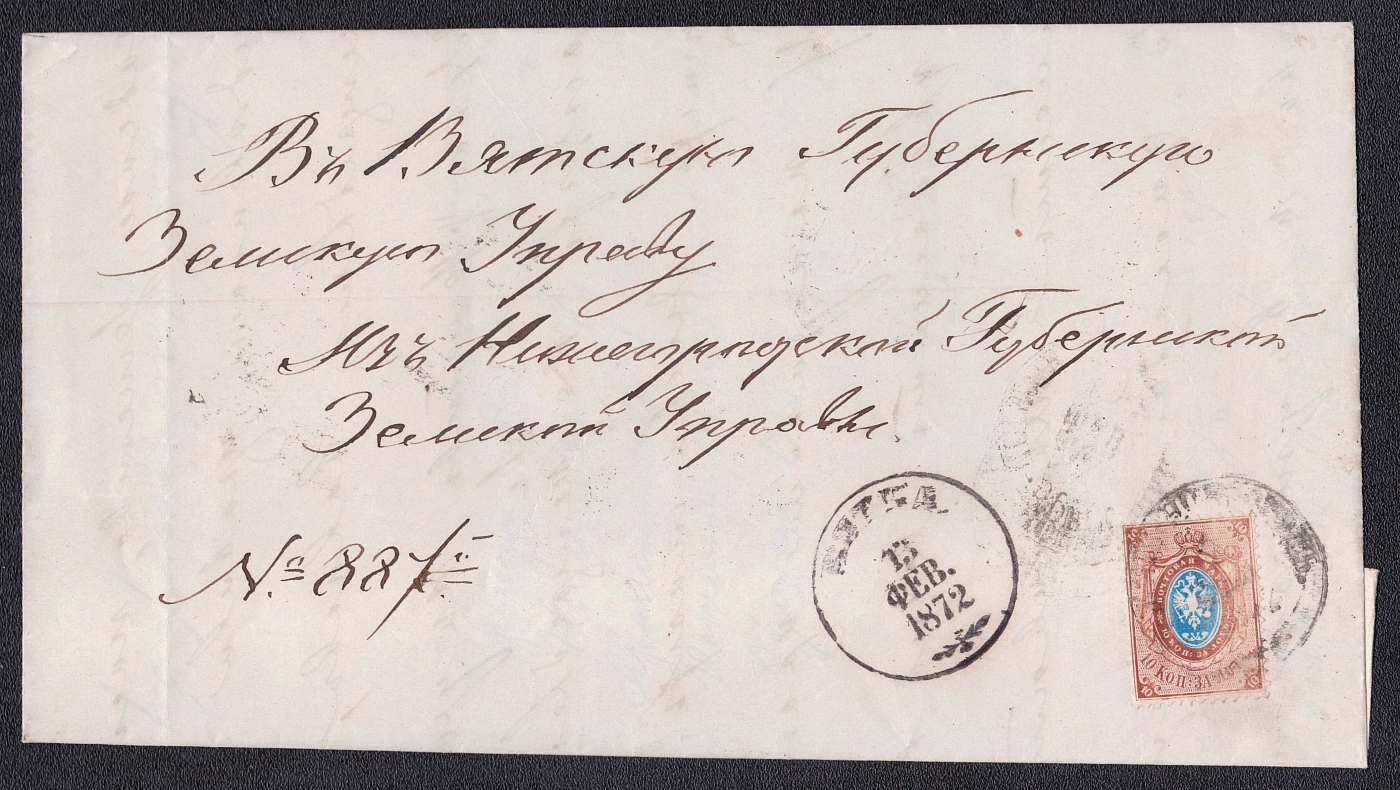 Въ Вятскую Губернскую
Земскую Управу
Изъ Нижегородской Губернской
Земской Управы.
№ 887.
ВЯТКА
13
ФЕВ.
1872
ПОЧТОВАЯ МАРКА
10 КОП. ЗА ЛОТЪ
10 КОП. ЗА ЛОТЪ